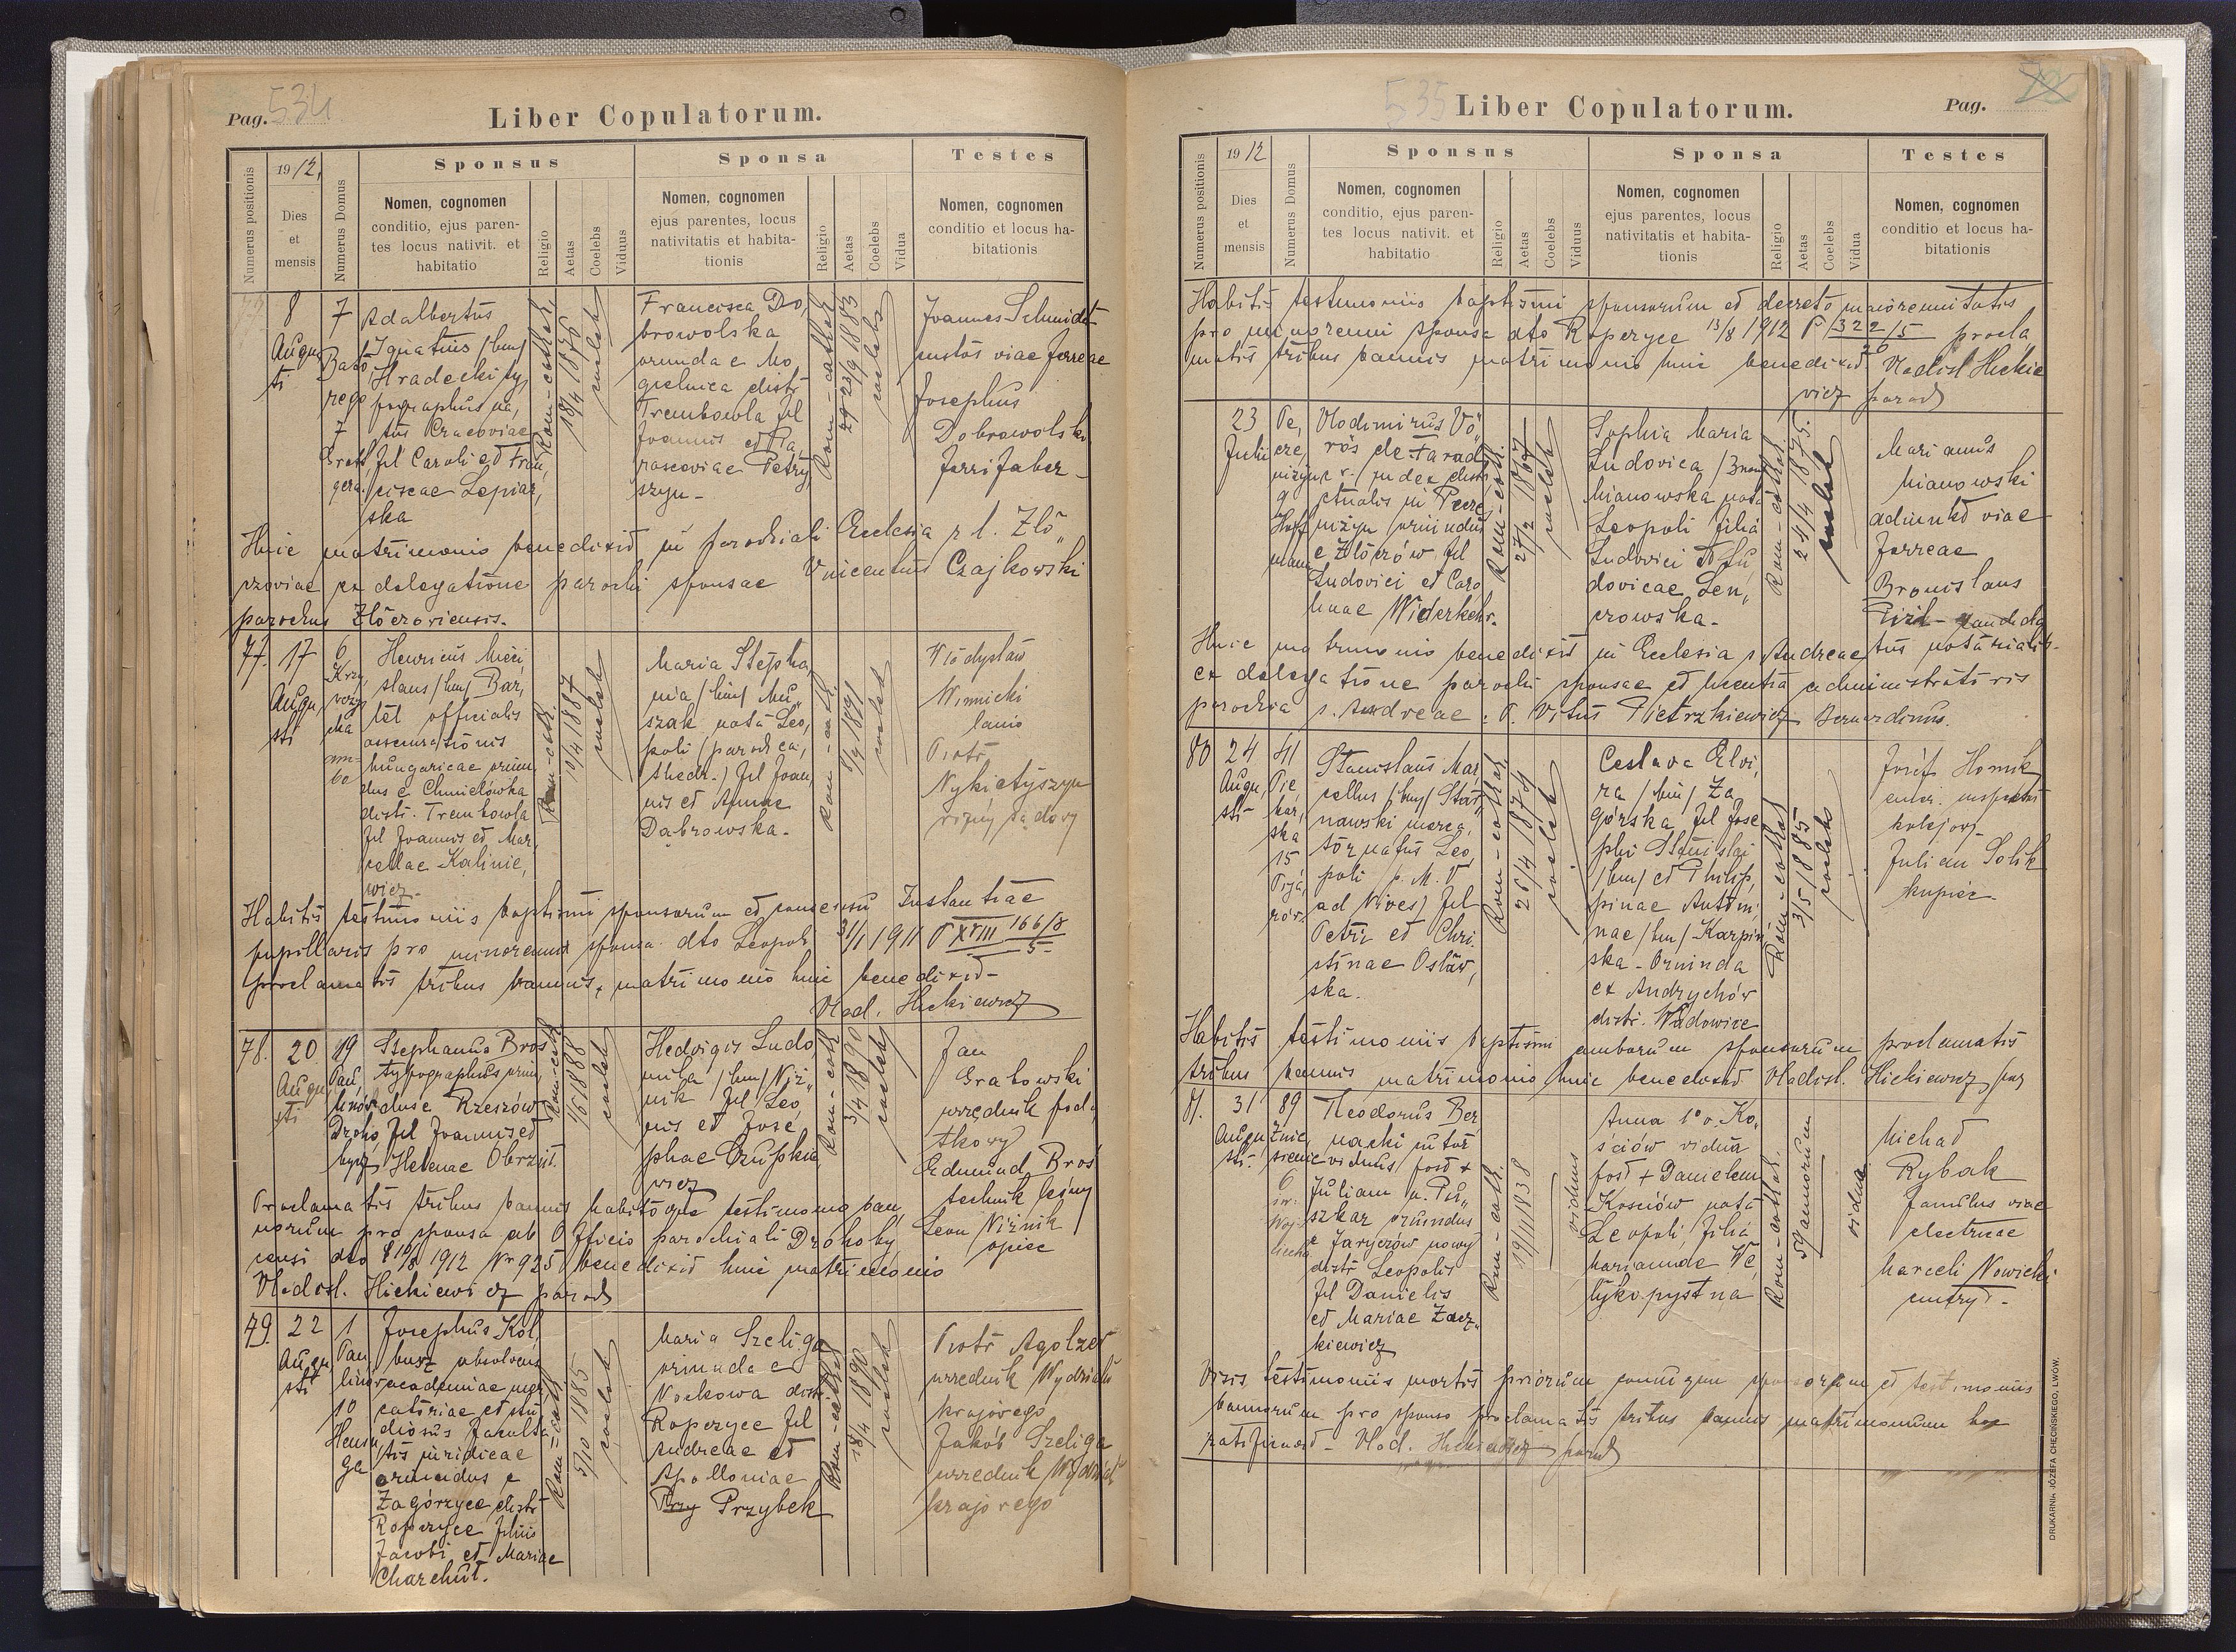 Pag. 534
Liber Copulatorum.
Numerus positionis
1912,
Dies
et
mensis
Numerus Domus
Sponsus
Nomen, cognomen
conditio, ejus paren-
tes locus nativit. et
habitatio
Religio
Aetas
Coelebs
Viduus
Sponsa
Nomen, cognomen
ejus parentes, locus
nativitatis et habita-
tionis
Religio
Aetas
Coelebs
Vidua
Testes
Nomen, cognomen
conditio et locus ha-
bitationis
8
Augu
sti
7
Bato
rego
7
Adalbertus
Ignatius /bin/
Hradecki ty,
pographus na,
tus Cracoviae
fil Caroli et Fran,
ciscae Lepiar,
ska
Rom-cathol,
18/4 1875
coelebs
Francisca Do,
browolska
oriunda e Mo
gielnica distr
Trembowla fil
Joannis et Pa,
rascoviae Petry
szyn-
Rom-cathol
29 23/9 1883
coelebs
Joannes Schmidt
custos viae ferreae
Josephus
Dobrowolski
ferri faber-
Huic matrimonio benedixit in parochiali Ecclesia r. l. Zło,,
czoviae ex delegatione parochi sponsae Vincentius Czajkowski
parochus Złoczoviensis.
77.
17
Augu,
sti
6
Henricus Mieci,
slaus /bin/ Bar,
tel officialis
assecurationis
hungaricae oriun
dus e Chmielówka
distr. Trembowla
fil Joannis et Mar,
cellae Kalinie,
wicz-
Rom-cath.
10/4 1887
coelebs
Maria Stepha,
nia /bin/ Mu,,
szak nata Leo,
poli (paroch ca,
thedr.) fil Joan,
nis et Annae
Dąbrowska-
Rom-cath.
9/9 1891
coelebs
Władysław
Winnicki
lanio
Piotr
Nykietyszyn
woźny sądowy
Habitis testimoniis baptismi sponsorum et consensu Instantiae
pupillaris pro minorenni sponsa dto Leopoli 31/1 1911 P XVIII 166/8
5-
proclamatis tribus bannis, matrimonio huic benedixit-
Vlad. Hickiewicz
78.
20
Augu
sti
19
Pau,
linów
Stephanus Broś
typographus oriun,
dus e Rzeszów
fil Joannis et
Helenae Obrzut.
Rom-cath
1/6 1888
coelebs
Hedvigis Ludo
mila /bin/ Niż,,
nik fil Leo
nis et Jose
phae Czupkie,
wicz
Rom-cath
3/4 1890
coelebs
Jan
Grabowski
urzędnik pod,
tkowy
Edmund Broś
technik leśny
Leon Niżnik
opiec
Proclamatis tribus bannis habitoque testimonio ban,
norum pro sponsa ab Officio parochiali Drohoby,
censi dto 8 18/8 1912 Nr 925 benedixit huic matrimonio
Vladisl. Hickiewicz paroch
79.
22
Augu
sti
1
Pau
linów
10
Josephus Kol,
busz absolvens
academiae mer
catoriae et stu
diosus faculta
tis juridicae
oriundus e
Zagórzyce distr
Ropczyce filius
Jacobi et Mariae
Charchut.
Rom-cath
5/10 1885
coelebs
Maria Szeliga
oriunda e
Nockowa distr.
Ropczyce fil
Andreae et
Apolloniae
Przy Przybek
Rom-cathol
18/4 1890
coelebs
Piotr Agolzer
urzędnik Wydziału
krajowego
Jakób Szeliga
urzędnik Wydział
krajowego
535
Liber Copulatorum.
Pag.
Numerus positionis
1912
Dies
et
mensis
Numerus Domus
Sponsus
Nomen, cognomen
conditio, ejus paren-
tes locus nativit. et
habitatio
Religio
Aetas
Coelebs
Viduus
Sponsa
Nomen, cognomen
ejus parentes, locus
nativitatis et habita-
tionis
Religio
Aetas
Coelebs
Vidua
Testes
Nomen, cognomen
conditio et locus ha-
bitationis
Habitis testimoniis baptismi sponsorum et decreto maiorennitatis
pro minorenni sponsa dto Ropczyce 13/8 1912 P 322/5 procla,
matis tribus bannis matrimonio huic benedixit Vladisl Hickie
wicz paroch
23
Julii
Pe,
cze,
niżyn
9
Hoff
mana
Vlodimirus Vö,,
rös de Farad
r./ judex distr
ctualis in Pecze
niżyn oriundus
e Złoczów fil
Ludovici et Caro
linae Widerkehr.
Rom-cath.
27/2 1867
coelebs
Sophia Maria
Ludovica
Mianowska nata
Leopoli filia
Ludovici et Lu
dovicae Len,,
czowska-
Rom-cathol
24/4 1875.
coelebs
Marianus
Mianowski
adiunkt viae
ferreae
Bronislaus
candida
tus notarialis-
Huic matrimonio benedixit in Ecclesia s. Andreae
ex delegatione parochi sponsae et licentia administratoris
parochia s. Andreae. P. Vitus Pietrzkiewicz Bernardinus.
80
24
Augu,
sti
41
Pie,
kar,
ska
15
Stanislaus Mar
cellus /bin/ Star,,
nawski merca,
tor natus Leo,
poli p. M. V
ad Nives) fil
Petri et Chri,
stinae Osław,
ska.
Rom-cathol
26/4 1874
coelebs
Ceslava Elvi,
ra /bin/ Za
górska fil Jose
phi Stanislai
/bin/ et Philip,
pinae Antoni,
nae /bin/ Karpiń
ska-Oriunda
ex Andrychów
distr. Wadowice
Rom-cathol
3/5 1885
coelebs
Józef Hornik
emer. inspektor
kolejowy-
Julian Solik
kupiec-
Habitis testimoniis baptismi amborum sponsorum proclamatis
tribus bannis matrimonio huic benedixit Vladisl. Hickiewicz par
81.
31
Augu
sti-
89
Znie,
sienie
6
św.
Woj
ciecha
Theodorus Ber
nacki sutor
viduus post +
Juliam n. Pu,,
szkar oriundus
e Jaryczów nowy
distr Leopolis
fil Danielis
et Mariae Zacz,,
kiewicz
Rom-cath.
19/11 1838
viduus
Anna 1º v. Ko,
ściów vidua
post + Danielem
Kościów nata
Leopoli filia
Mariannae We
łykopystna
Rom-cathol.
59 annorum
vidua
Michał
Rybak
famulus viae
electricae
Marceli Nowicki
emeryt-
Visis testimoniis mortis priorum coniugum sponsorum et testimoniis
bannorum pro sponso proclamatis tribus bannis matrimonium hoc
ratificavit- Vlad. Hickiewicz paroch
DRUKARNIA JÓZEFA CHĘCIŃSKIEGO, LWÓW.